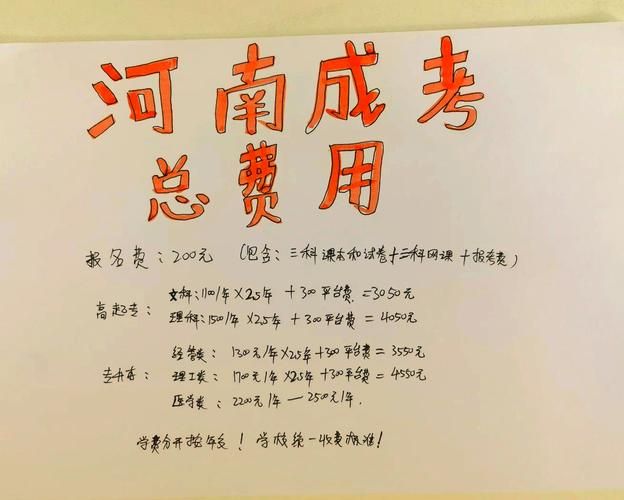 河南成考
总费用
报名费：200元 （包含：三科课本和试卷+三科网课+报考费）
文科：1100/年×2.5年 +300平台费 =3050元
高起专：
理科：1500/年×2.5年 +300平台费 = 4050元
经管类： 1300元/年×2.5年+300平台费=3550元
专升本： 理工类： 1700元/年×2.5年+300平台费=4550元
医学类： 2200元/年—2500元/年.
学费分开按年交！ 学校统一收费标准！